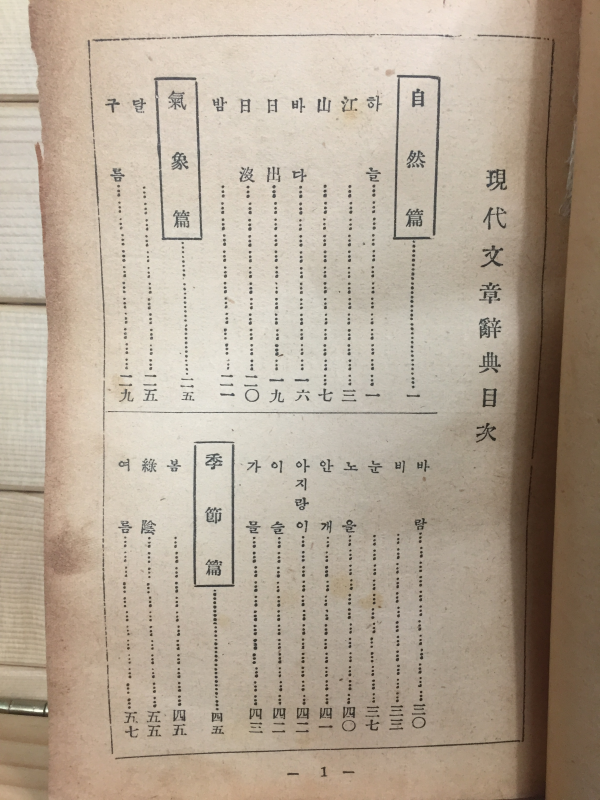 現代文章辭典目次
自然篇……一
하늘……一
江……三
山……七
바다……一六
日出……一九
日沒……二〇
밤……二一
氣象篇……二五
달……二五
구름……二九
바람……三〇
비……三三
눈……三七
노을……四〇
안개……四一
아지랑이……四二
이슬……四二
가믈……四三
季節篇……四五
봄……四五
綠陰……五五
여름……五七
— 1 —